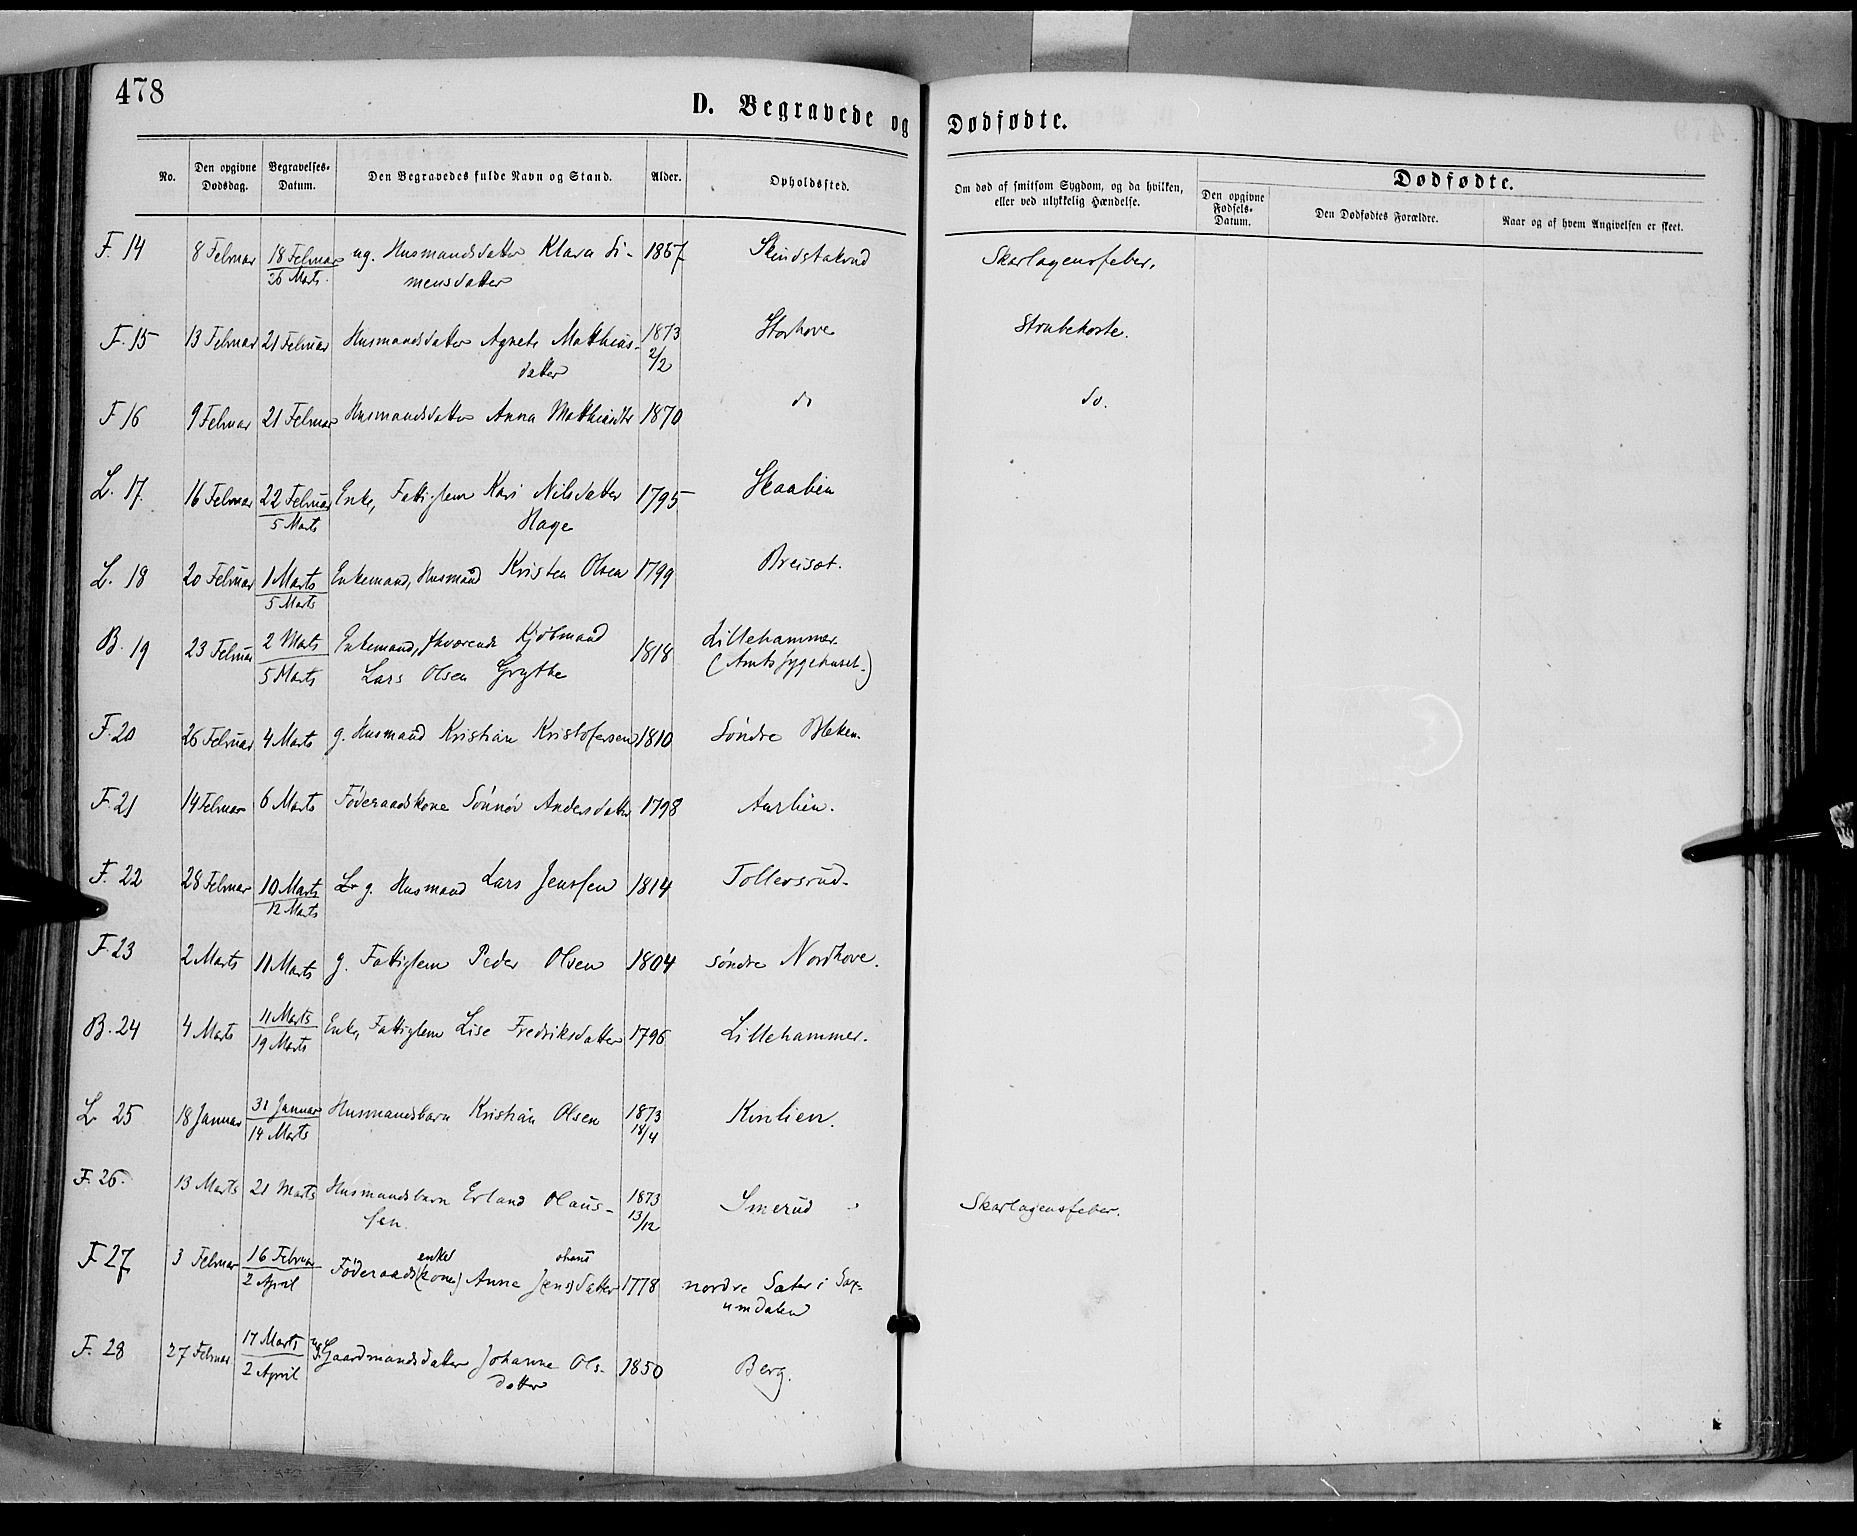 478
D. Begravede og Dødfødte.
No. Den opgivne Dødsdag. Begravelses-Datum. Den Begravedes fulde Navn og Stand. Alder. Opholdssted. Om død af smitsom Sygdom, og da hvilken, eller ved ulykkelig Hændelse. Dødfødte.
Den opgivne Fødsels-Datum. Den Dødfødtes Forældre. Naar og af hvem Angivelsen er skeet.
F. 14 8 Februar 18 Februar ug. Husmandsdatter Klara Si- 1867 Skindstakrud Skarlagensfeber.
26 Marts. mensdatter
F. 15 13 Februar 21 Februar Husmandsdatter Agnete Matthias- 1873 Storhove Strubehoste.
datter 2/2
F 16 9 Februar 21 Februar Husmandsdatter Anna Matthiasdtr 1870 do do.
L. 17. 16 Februar 22 Februar Enke, Fattiglem Kari Nilsdatter 1795 Skaalien
5 Marts Hage
L. 18 20 Februar 1 Marts Enkemand, Husmand Kristen Olsen 1799 Breisæt.
5 Marts
B. 19 23 Februar 2 Marts Enkemand, fhværende Kjøbmand 1818 Lillehammer
5 Marts Lars Olsen Grythe (Amtssygehuset.)
F. 20 26 Februar 4 Marts g. Husmand Kristian Kristofersen 1810 Søndre Bleken.
F. 21 14 Februar 6 Marts Føderaadskone Sønnøv Andersdatter 1798 Aurlien.
F. 22 28 Februar 10 Marts g. Husmand Lars Jenssen 1814 Tollersrud.
12 Marts
F. 23 2 Marts 11 Marts g. Fattiglem Peder Olsen 1804 søndre Nordhove.
B. 24 4 Marts 11 Marts Enke, Fattiglem Lise Fredriksdatter 1796 Lillehammer.
19 Marts
L 25 18 Januar 31 Januar Husmandsbarn Kristian Olsen 1873 Kinlien.
14 Marts 18/4
F. 26. 13 Marts 21 Marts Husmandsbarn Erland Olaus- 1873 Smerud Skarlagensfeber.
sen. 13/12
enke ohans
F 27 3 Februar 16 Februar Føderaads(kone) Anna Jensdatter 1778 nordre Sæter i Sax-
2 April umdalen
F. 28 27 Februar 17 Marts ug. Gaardmandsdatter Johanne Ols- 1850 Berg.
2 April datter